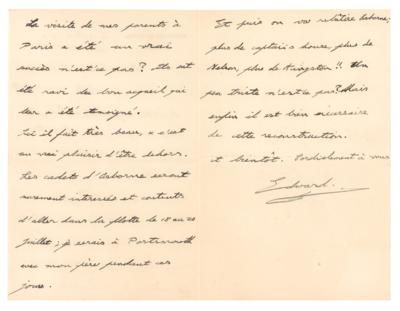 La visite de mes parents à
Paris a été un vrai
succès n'est ce pas? Ils ont
été ravi du bon accueil qui
leur a été temoigné.
Ici il fait très beau, et c'est
un vrai plaisir d'être dehors.
Les cadets d'Osborne seront
surement interressés et contents
d'aller dans la flotte de 18 au 22
Juillet; je serais à Portsmouth
avec mon père pendant ces
jours.
Et puis on va refaire Osborne;
plus de captain's house, plus de
Nelson, plus de Kingston!! Un
peu triste n'est ce pas? Mais
enfin il est bien nécessaire
de cette reconstruction.
A bientôt. Cordialement à vous
Edward.